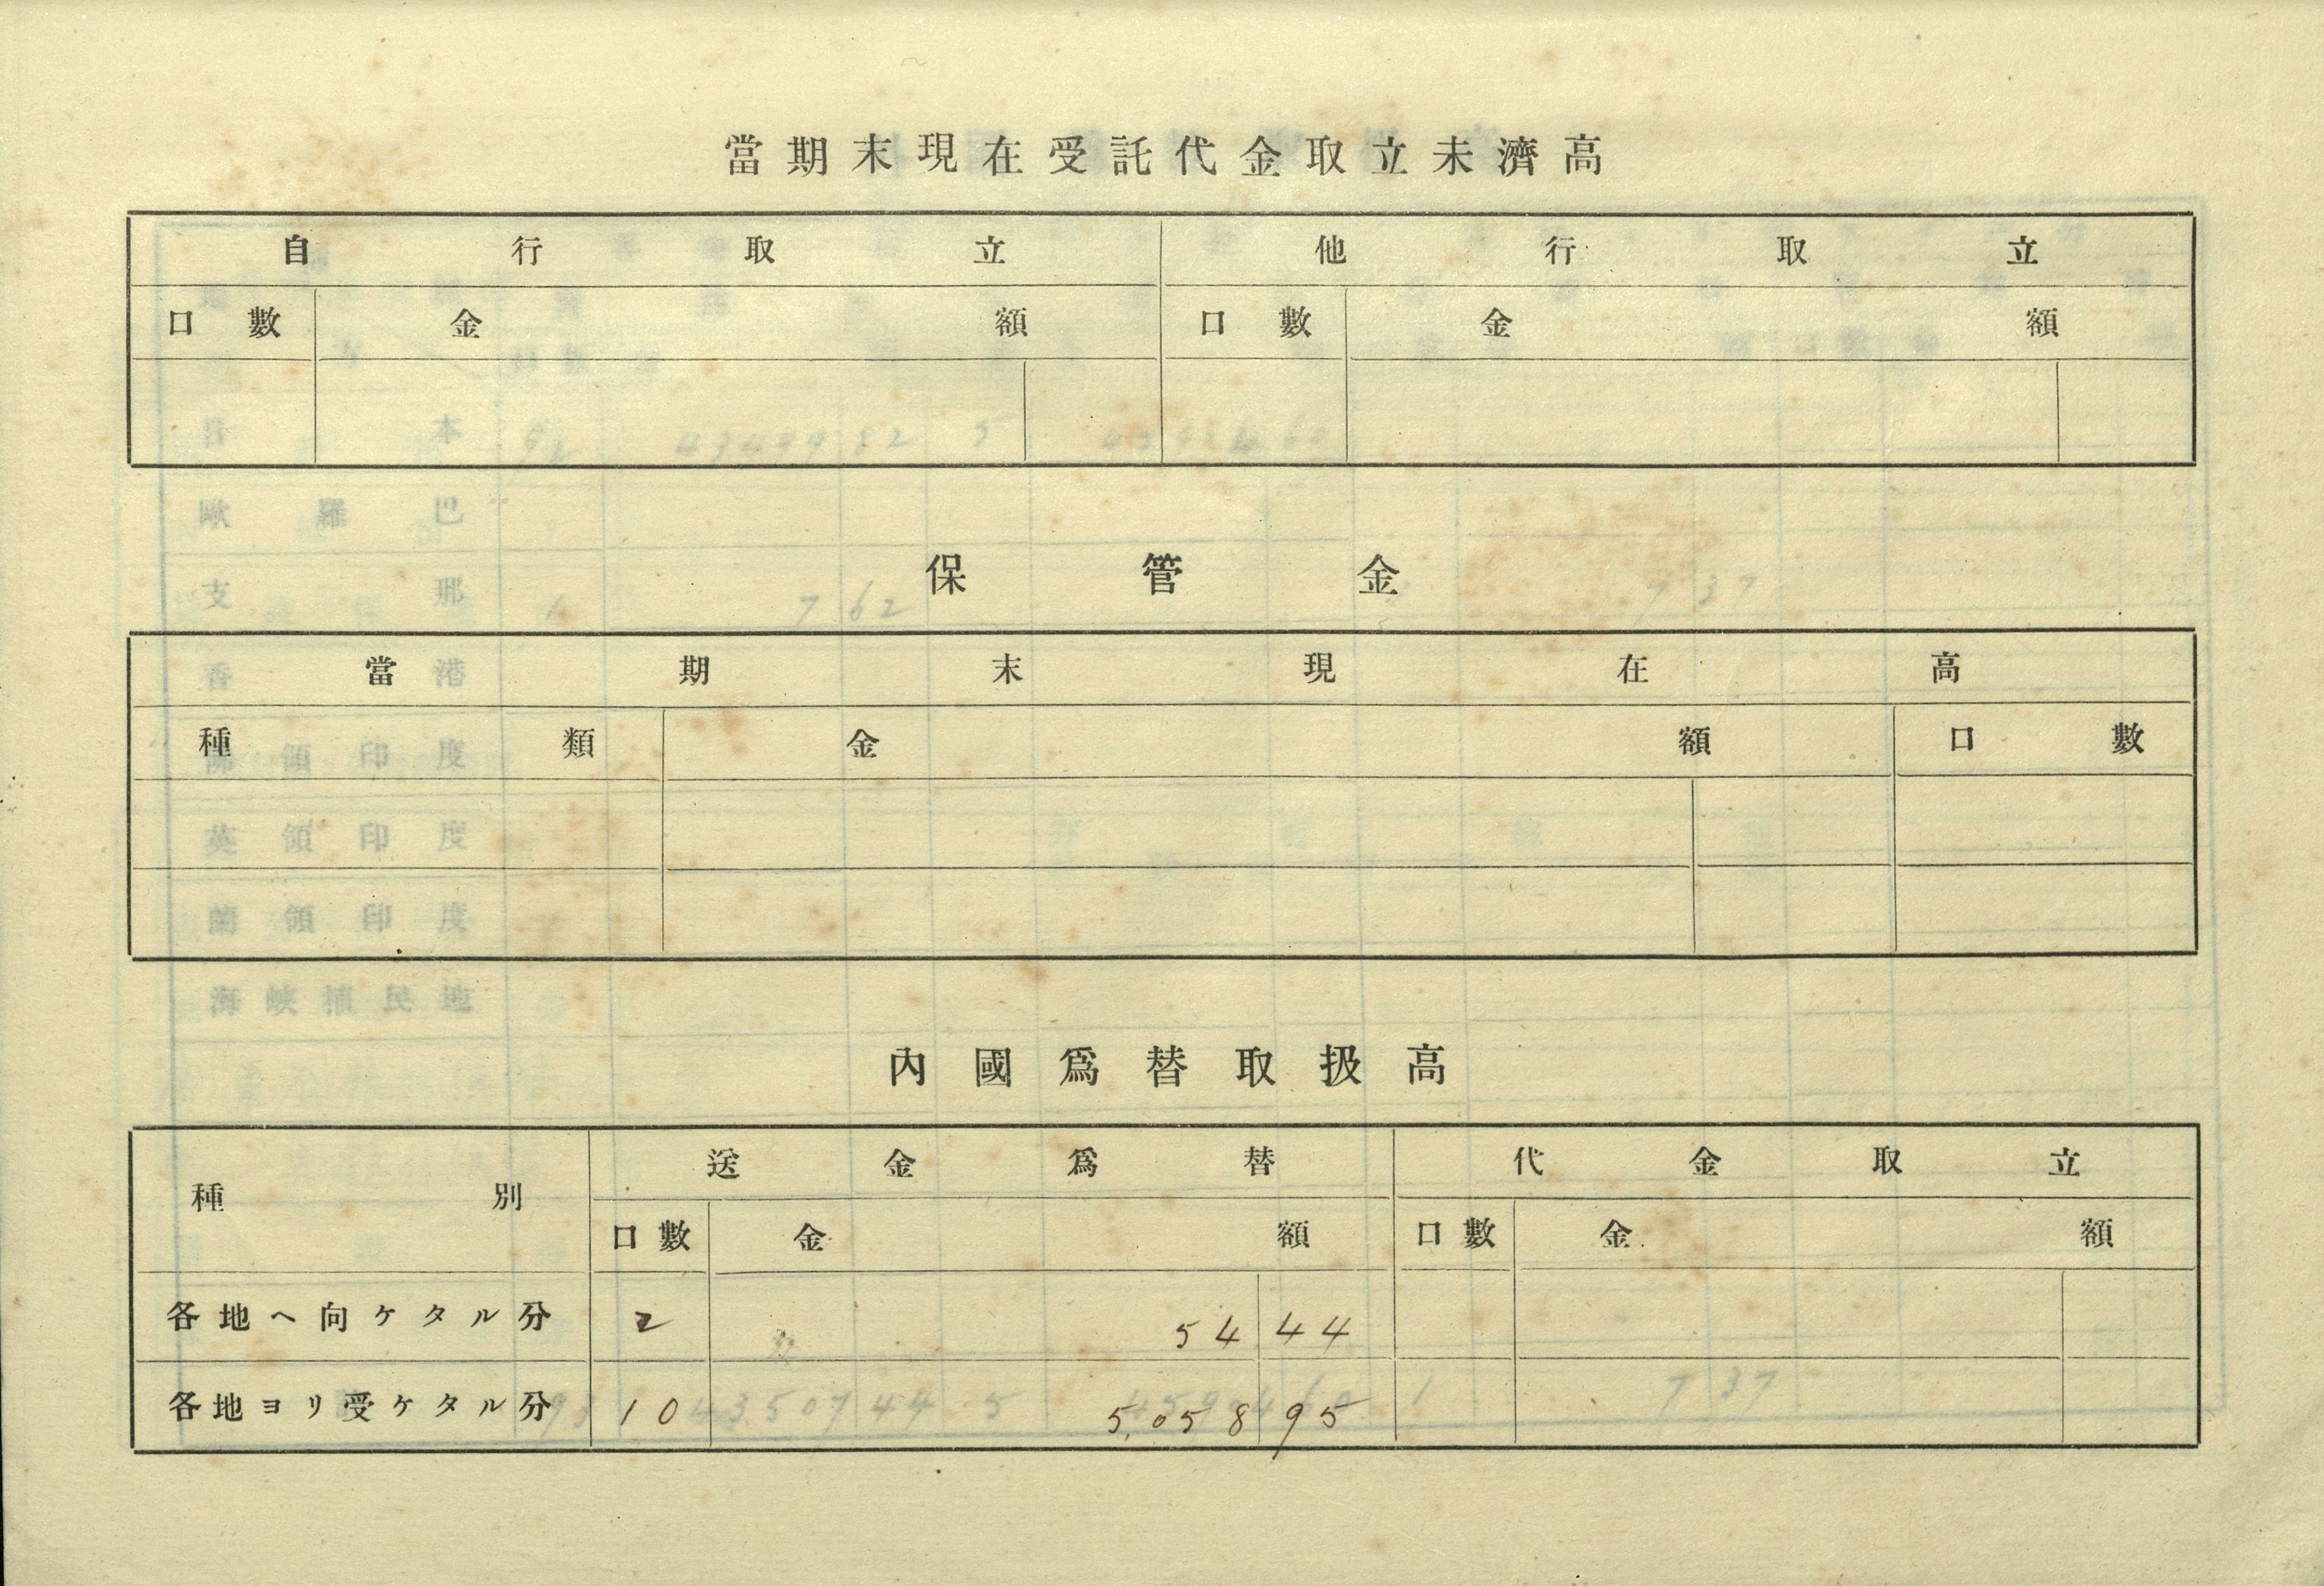 當期末現在受託代金取立未濟高
自行取立 他行取立
口數 金額 口數 金額
保管金
當期末現在高
種類 金額 口數
內國爲替取扱高
種別 送金爲替 代金取立
口數 金額 口數 金額
各地ヘ向ケタル分 2 54 44
各地ヨリ受ケタル分 10 5,058 95